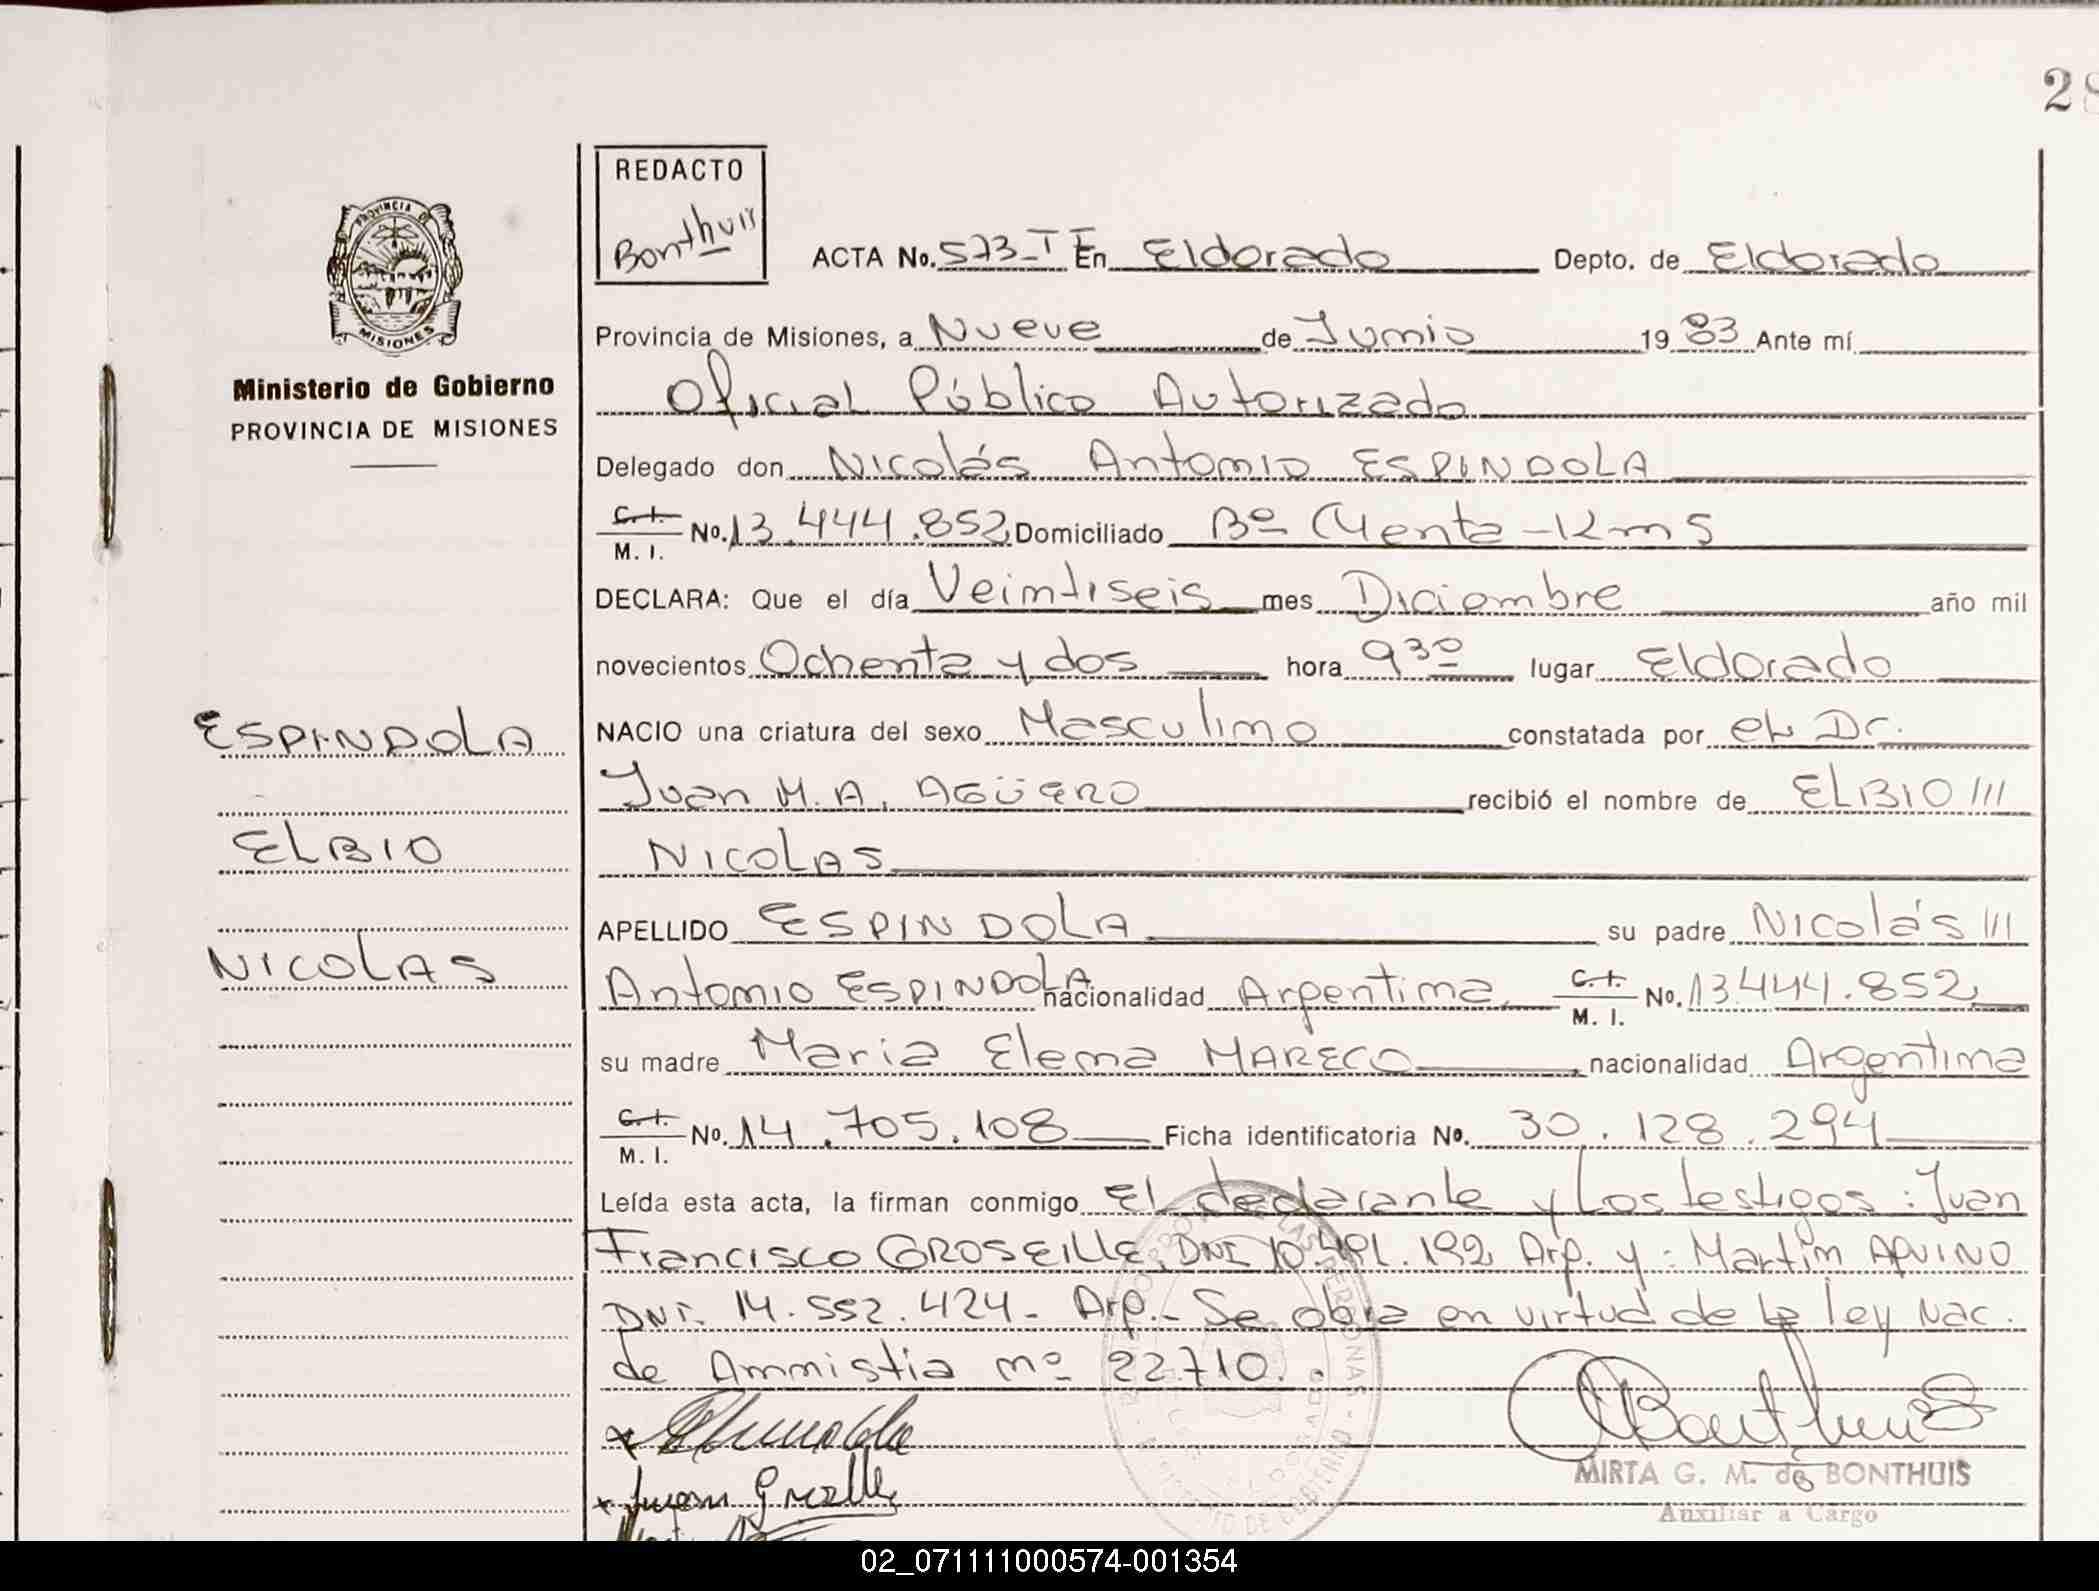 28
REDACTO
Bonthuis
PROVINCIA DE
MISIONES
Ministerio de Gobierno
PROVINCIA DE MISIONES
ESPINDOLA
ELBIO
NICOLAS
ACTA No. 573-T En Eldorado Depto. de Eldorado
Provincia de Misiones, a Nueve de Junio 1983 Ante mí
Oficial Público Autorizado
Delegado don Nicolás Antonio ESPINDOLA
C.I. M. I. No. 13.444.852 Domiciliado Bº Cuenta - Km 5
DECLARA: Que el día Veintiseis mes Diciembre año mil
novecientos Ochenta y dos hora 9 30 lugar Eldorado
NACIO una criatura del sexo Masculino constatada por el Dr.
Juan M. A. AGÜERO recibió el nombre de ELBIO ///
NICOLAS
APELLIDO ESPINDOLA su padre Nicolás ///
Antonio ESPINDOLA nacionalidad Argentina, C.I. M. I. No. 13.444.852,
su madre Maria Elena MARECO, nacionalidad Argentina
C.I. M. I. No. 14.705.108 Ficha identificatoria No. 30.128.294
Leída esta acta, la firman conmigo El declarante y los testigos: Juan
Francisco GROSEILLE, DNI 10.491.192 Arg. y: Martín AQUINO
DNI. 14.552.424 - Arg.- Se obra en virtud de la ley Nac.
de Amnistia nº 22.710.
MIRTA G. M. de BONTHUIS
Auxiliar a Cargo
02_071111000574-001354